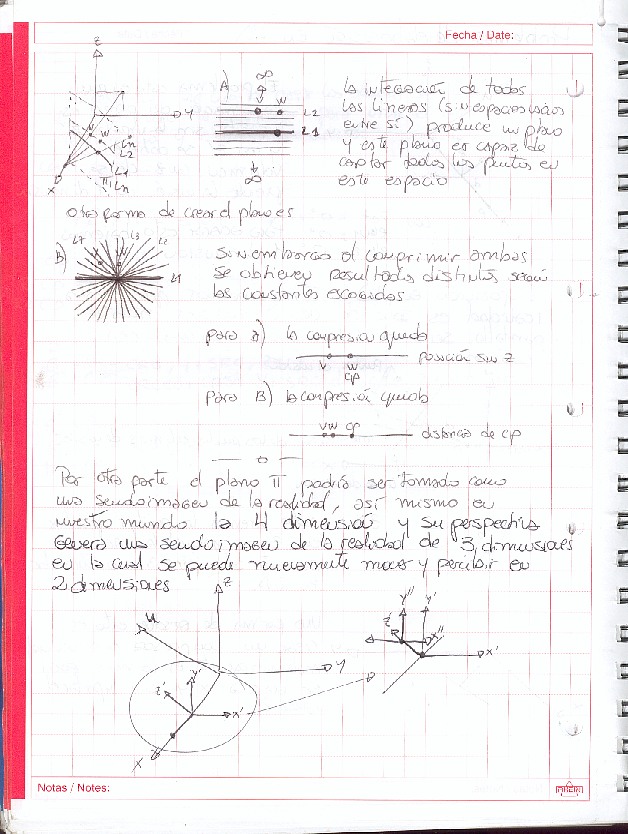 Fecha / Date:
Z
Y
X
W
L2
L1
Ln
π
A)
∞
V W
L2
L1
∞
la integración de todas
las lineas (sin espaciarlas
entre sí) produce un plano
y este plano es capaz de
captar todos los puntos en
este espacio
otra forma de crear el plano es
B)
L3
L2
L1
Sin embargo al comprimir ambas
se obtienen resultados distintos según
las constantes escogidas
para A) la compresion queda
V W
CP
posición sin Z
para B) la compresión queda
VW CP
distancia de CP
Por otra parte el plano π podría ser tomado como
una seudoimagen de la realidad, así mismo en
nuestro mundo la 4 dimensión y su perspectiva
genera una seudoimagen de la realidad de 3 dimensiones
en la cual se puede nuevamente mover y percibir en
2 dimensiones
Z
U
Y
Z' Y'
X'
X
Y'' Y'
Z' X''
X'
Notas / Notes: